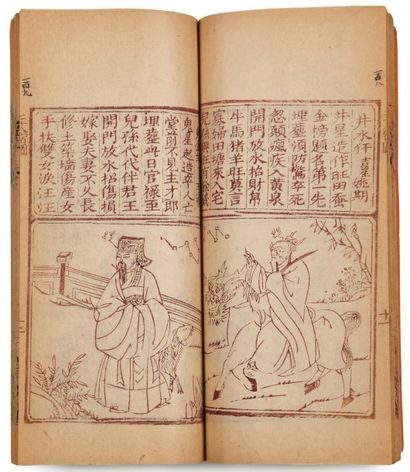 百八
井水犴 吉星姚期
井星造作旺田蚕
金榜題名第一先
埋葬須防驚卒死
忽顛瘋疾入黄泉
開門放水招財帛
牛馬猪羊旺莫言
寡婦田塘来入宅
鬼星起造卒人亡
堂前不見主才郎
埋葬此日官禄至
兒孫代代伴君王
開門放水招傷損
嫁娶夫妻不久長
修土築墻傷産女
手扶雙女淚汪汪
百九